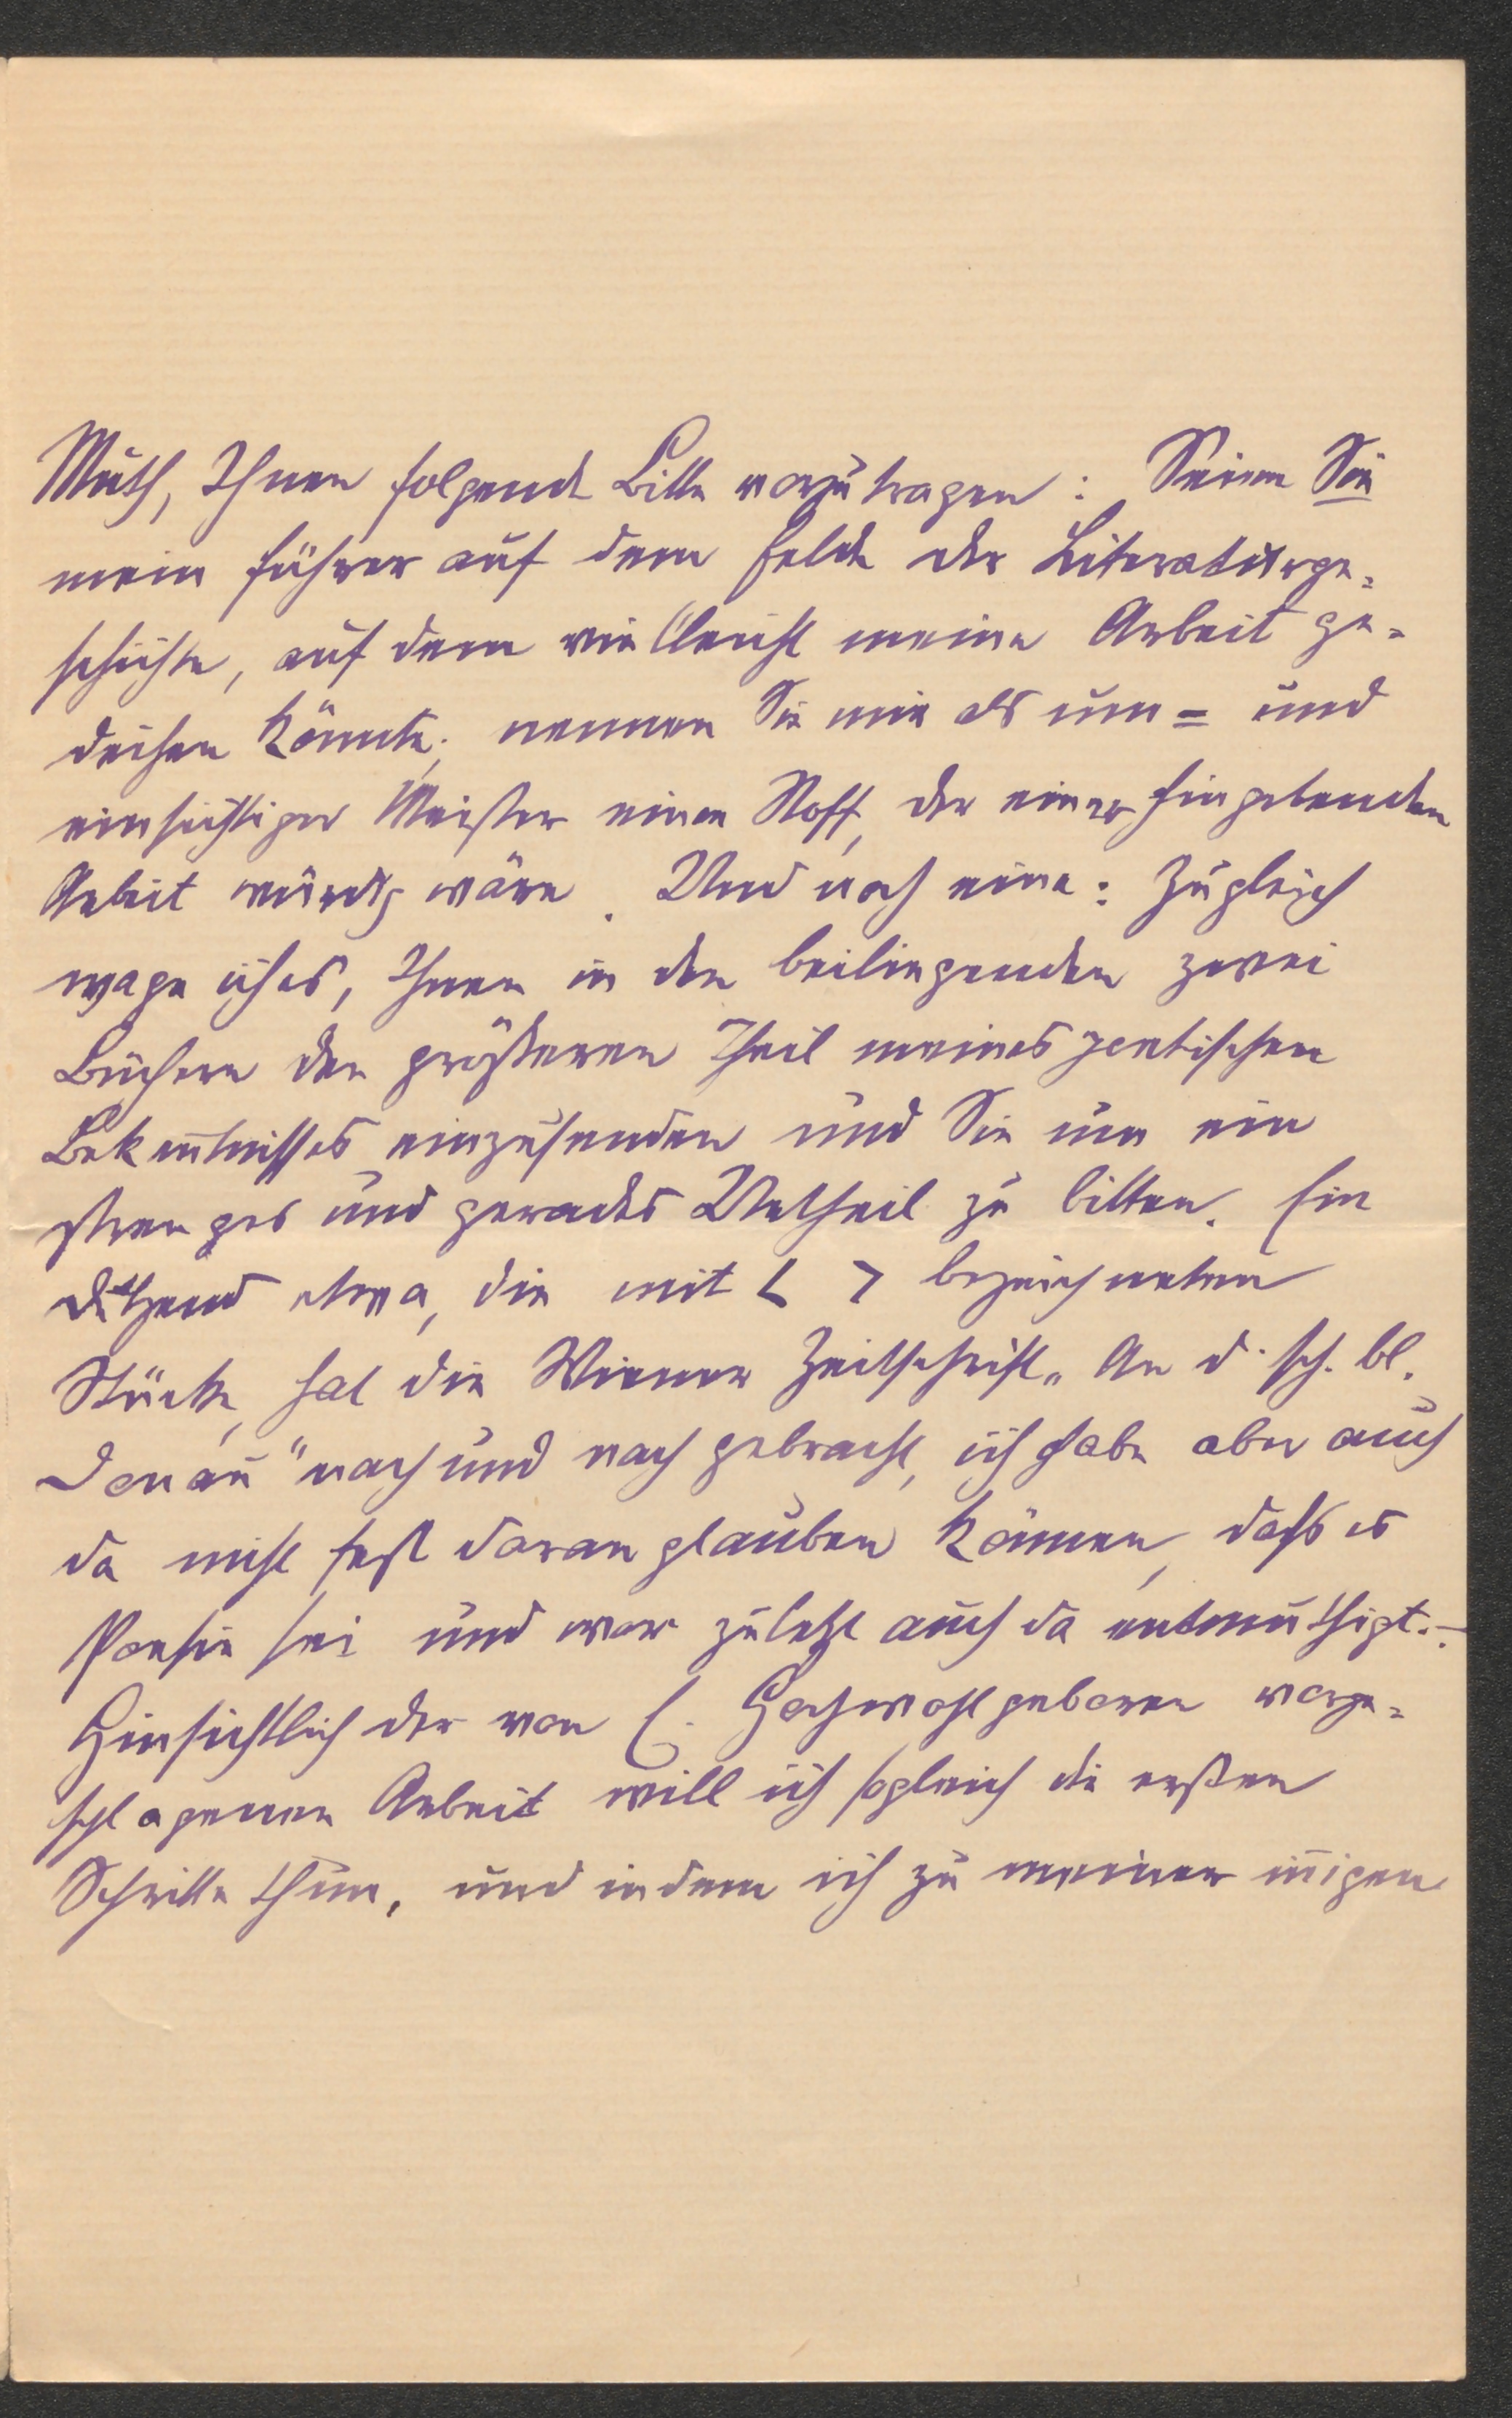 Muth, Ihnen folgende Bitte vorzutragen: Seien Sie
mein Führer auf dem Felde der Literaturge-
schichte, auf dem vielleicht meine Arbeit ge-
deihen könnte; nennen Sie mir als um- und
einsichtiger Meister einen Stoff, der einer hingebenden
Arbeit würdig wäre. Und noch eine: Zugleich
wage ich es, Ihnen in den beiliegenden zwei
Büchern den größeren Theil meines poetischen
Bekenntnisses einzusenden und Sie um ein
strenges und gerades Urtheil zu bitten. Ein
Dutzend etwa, die mit < > bezeichneten
Stücke, hat die Wiener Zeitschrift „An d. sch. bl.
Donau" nach und nach gebracht, ich habe aber auch
da nicht fest daran glauben können, dass es
Poesie sei und war zuletzt auch da entmuthigt. –
Hinsichtlich der von E. Hochwohlgeboren vorge-
schlagenen Arbeit will ich sogleich die ersten
Schritte thun, und indem ich zu meiner innigen